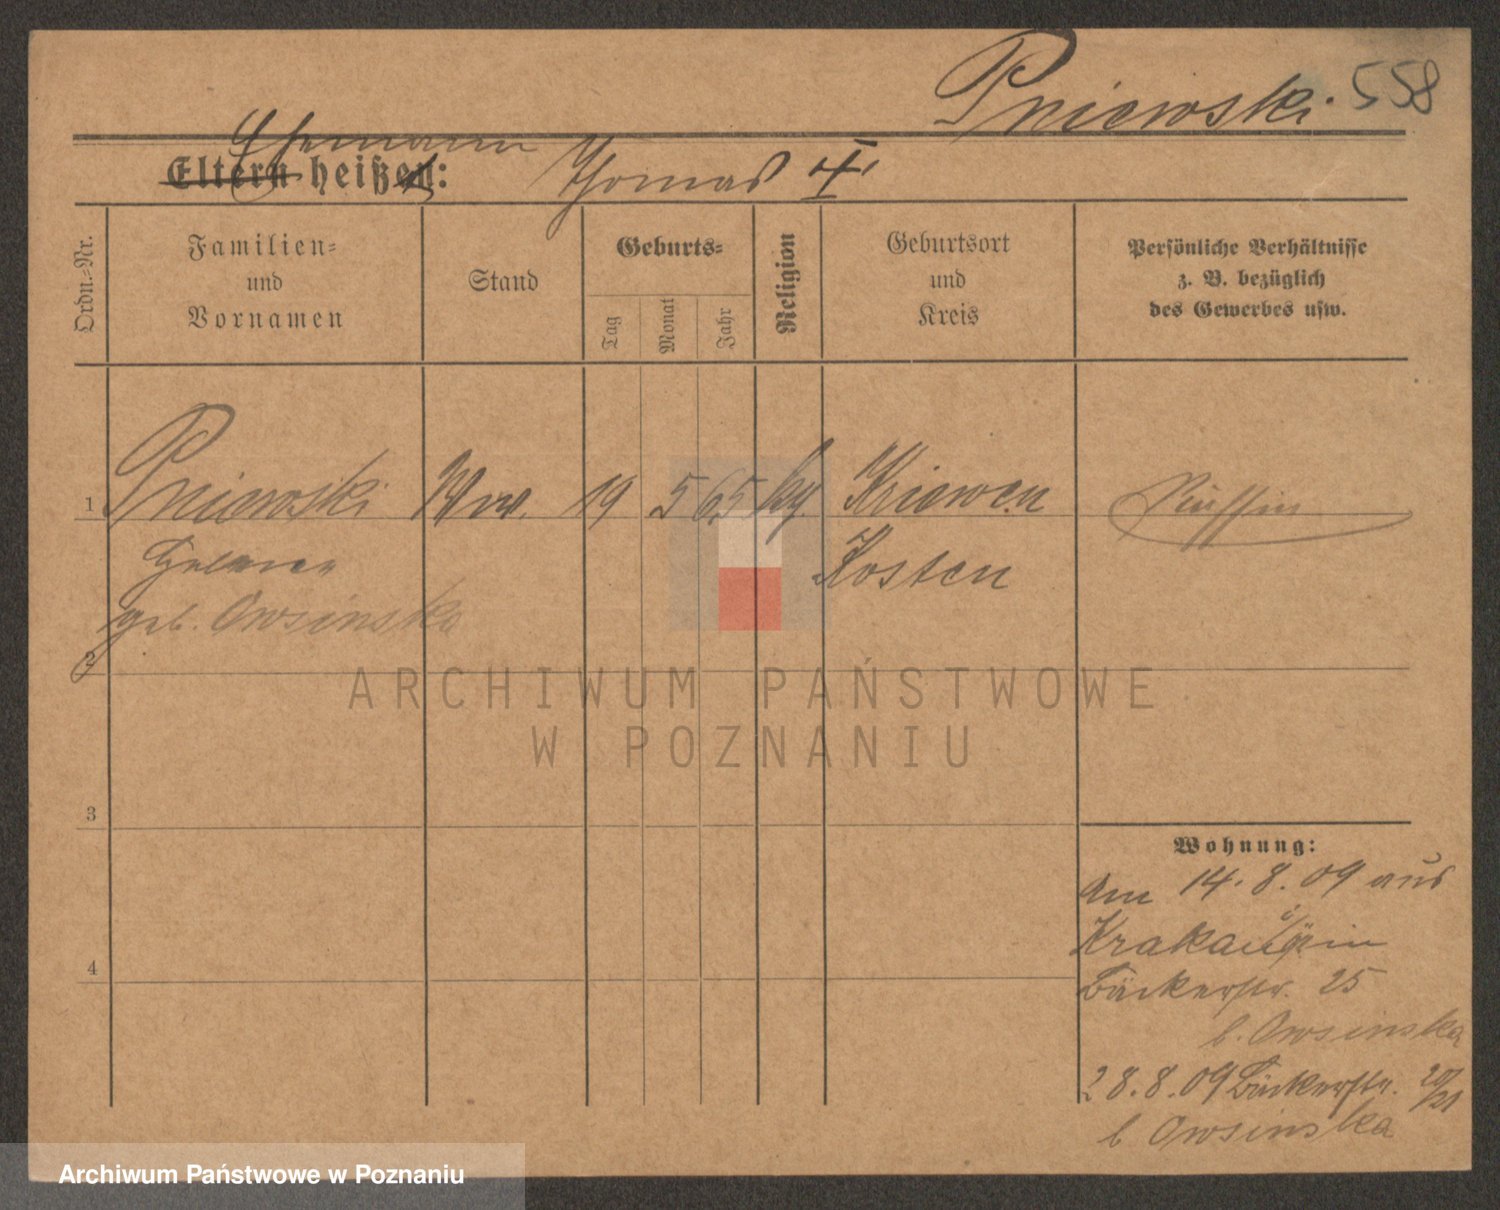 Pniewski. 558
Ehemann
Eltern heißen: Thomas I
Ordn.-Nr.
Familien-
und
Vornamen
Stand
Geburts-
Tag
Monat
Jahr
Religion
Geburtsort
und
Kreis
Persönliche Verhältnisse
z. B. bezüglich
des Gewerbes usw.
1 Pniewski Ww. 19 5 65 kg Kriewen
Helene Kosten
geb. Owsinska
2
ARCHIWUM PAŃSTWOWE
W POZNANIU
3
4
Wohnung:
Am 14.8.09 aus
Krakau
Bäckerstr. 25
b. Owsinska
28.8.09 Bäckerstr. 20/21
b Owsinska
Archiwum Państwowe w Poznaniu